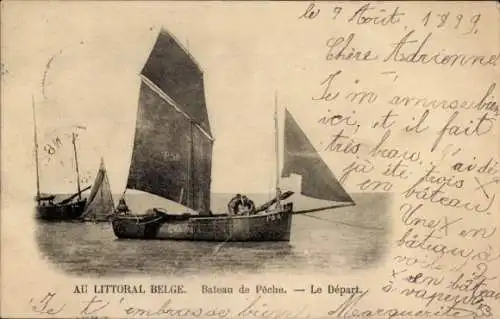 le 9 Août, 1899
Chère Adrienne
Je m'amuse bien
ici, et il fait
très beau. J'ai déjà
été trois x
en bateau,
Une x en
bateau à
voile x
en bateau
à vapeur
AU LITTORAL BELGE. Bateau de Pêche. — Le Départ.
Je t'embrasse bien Marguerite